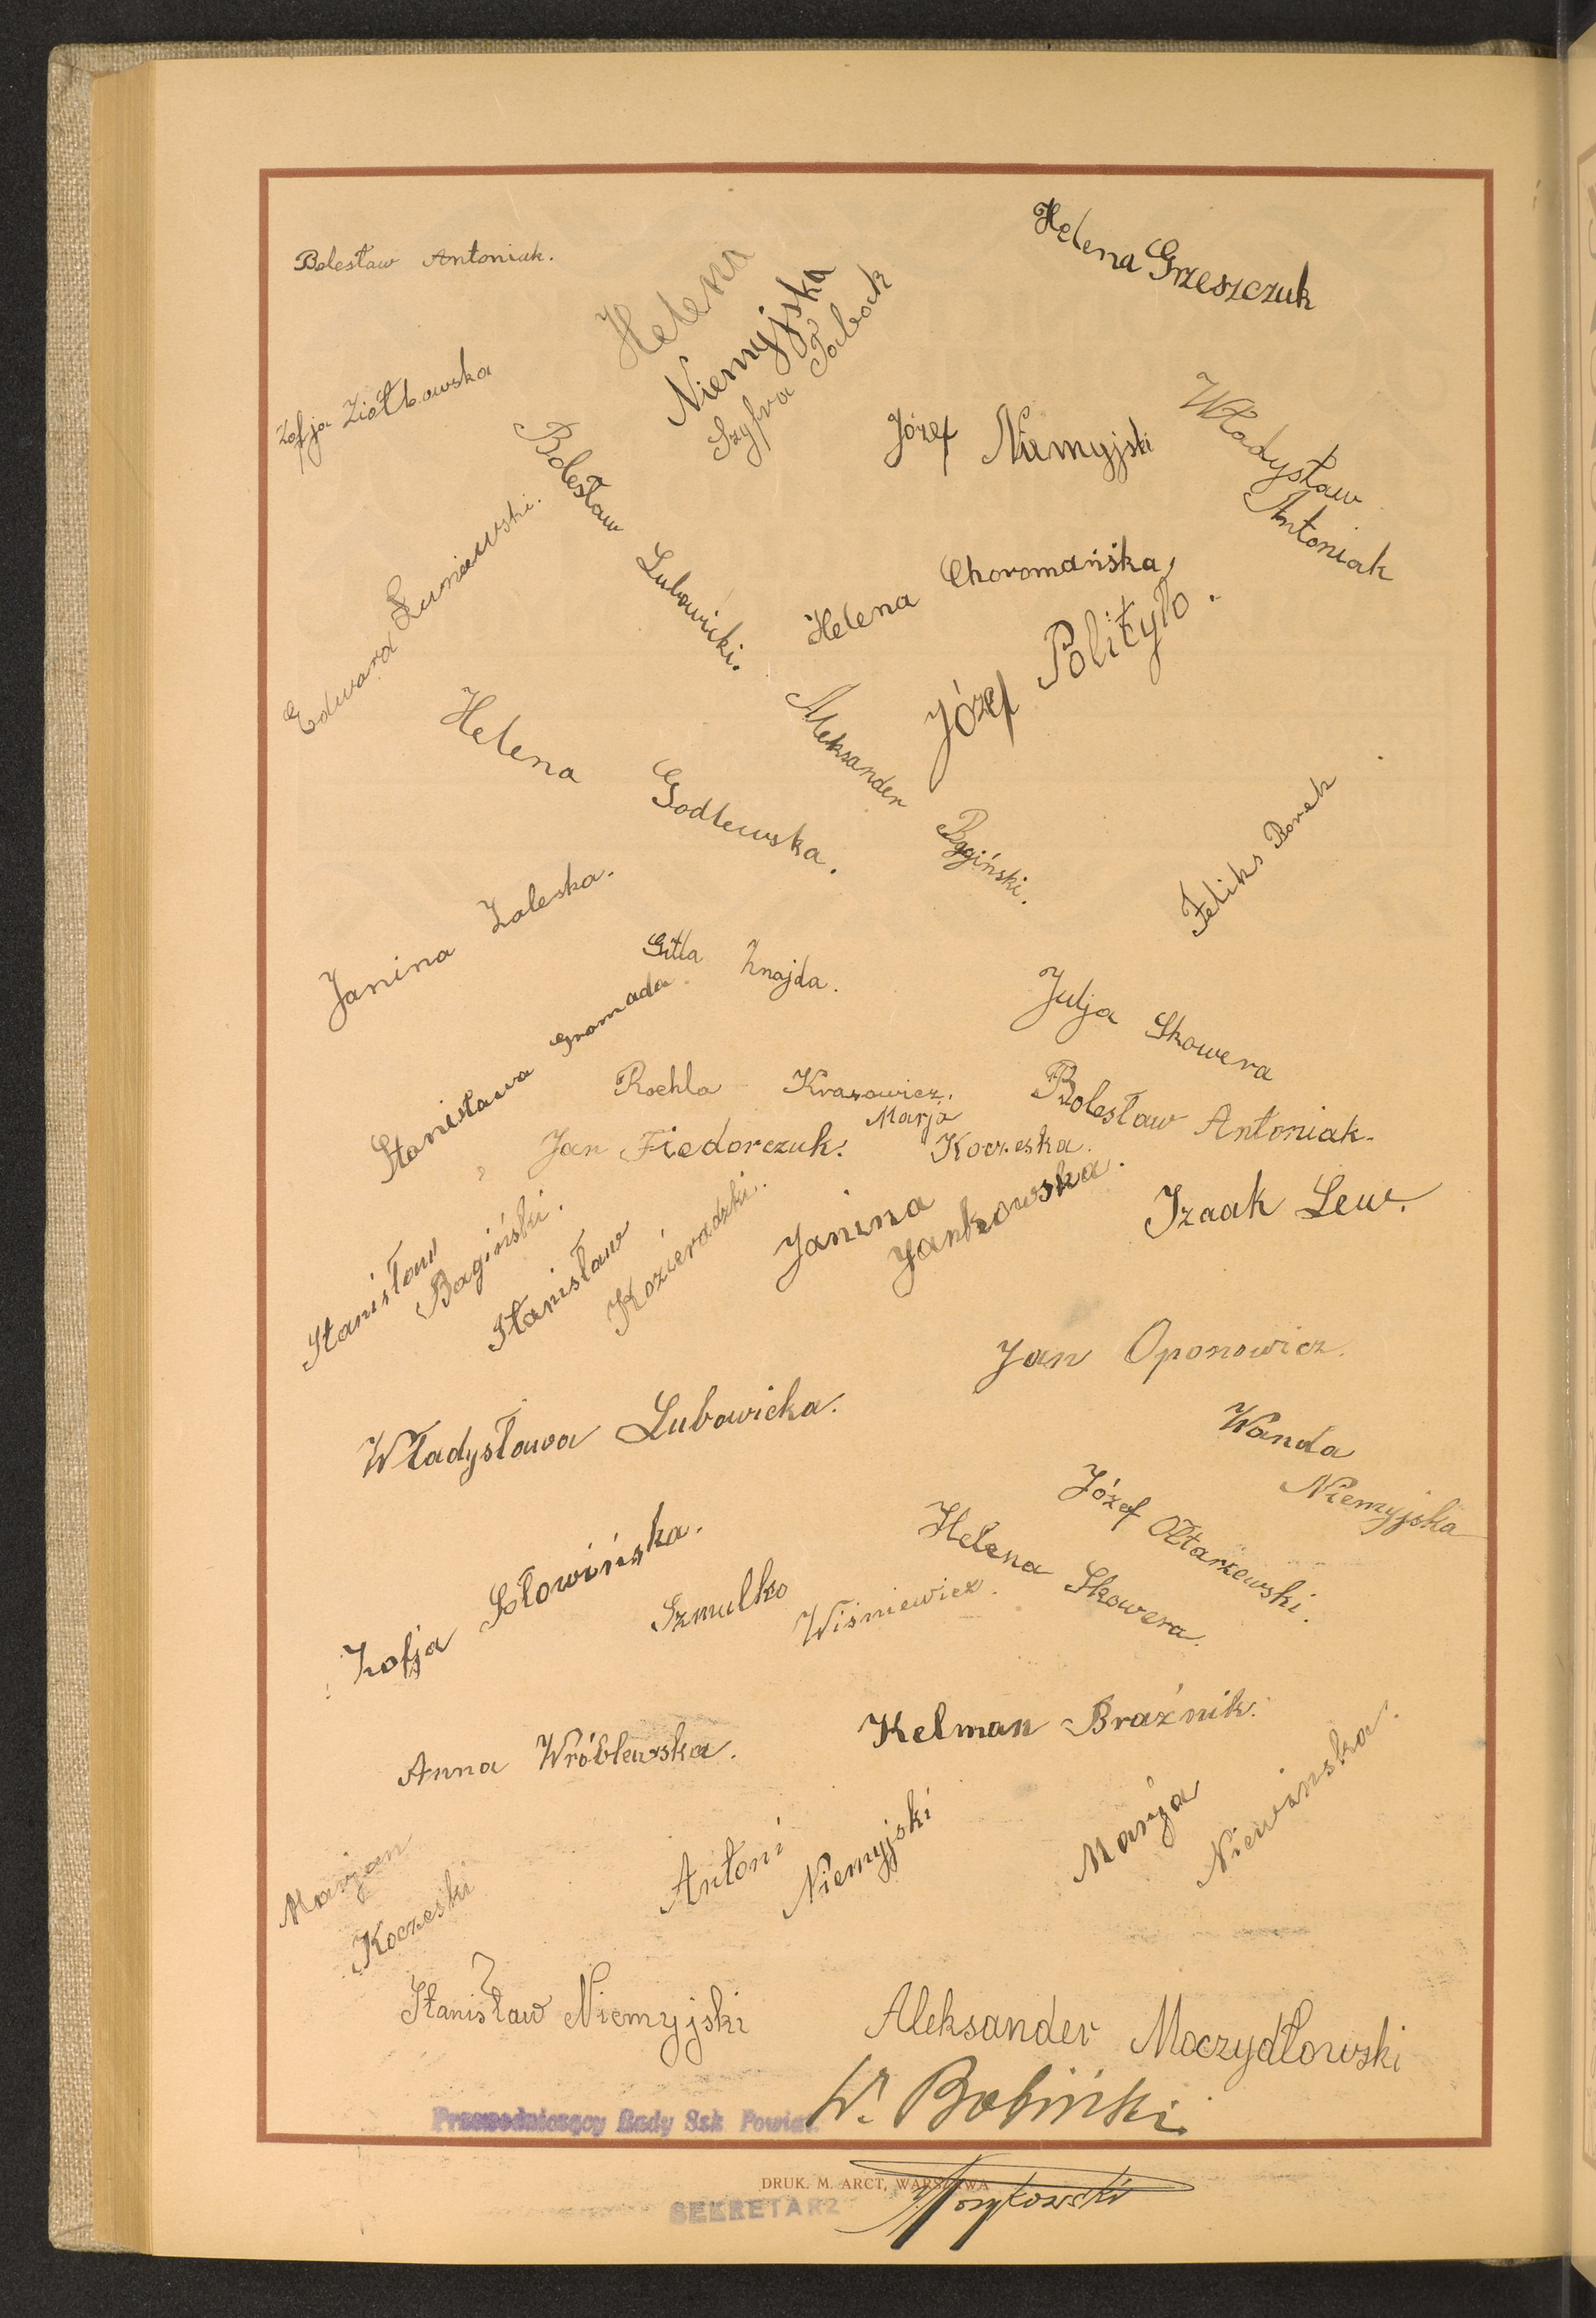 Bolesław Antoniak.
Helena Grzeszczuk
Helena
Niemyjska
Szyfra Taback
Zofja Ziółkowska
Bolesław Lubowicki.
Józef Niemyjski
Władysław
Antoniak
Edward Łuniewski.
Helena Choromańska
Józef Polityło.
Helena Godlewska.
Aleksander Bagiński.
Feliks Borek
Janina Zaleska.
Gitla Znajda.
Julja Skowera
Stanisława Gromada.
Rochla Krasowicz.
Bolesław Antoniak.
Jan Fiedorczuk.
Marja
Koczeska.
Stanisław
Bagiński.
Stanisław
Kozieradzki.
Janina
Jankowska.
Izaak Lew.
Jan Oponowicz.
Władysława Lubowicka.
Wanda
Niemyjska
Józef Ołtarzewski.
Helena Skowera.
Zofja Słowińska.
Szmulko Wiśniewicz.
Anna Wróblewska.
Kelman Braźnik.
Marjan
Koczeski
Antoni
Niemyjski
Marja
Niewińska.
Stanisław Niemyjski
Aleksander Moczydłowski
Przewodniczący Rady Szk Powiat.
W. Bobiński
DRUK. M. ARCT, WARSZAWA
SEKRETARZ